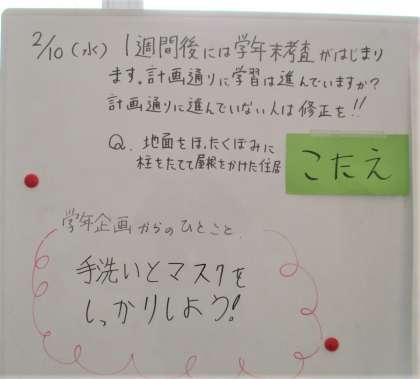 2/10(水) 1週間後には学年末考査がはじまり
ます。計画通りに学習は進んでいますか?
計画通りに進んでいない人は修正を!!
Q. 地面をほったくぼみに
柱をたてて屋根をかけた住居
こたえ
学年企画からのひとこと
手洗いとマスクを
しっかりしよう!